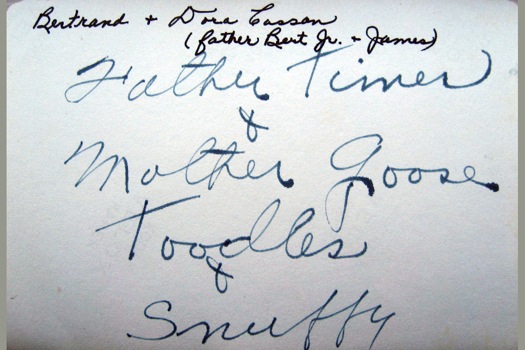 Bertrand + Dora Cassan
(father Bert Jr. + James)
Father Timer
&
Mother Goose
Toodles
&
Snuffy